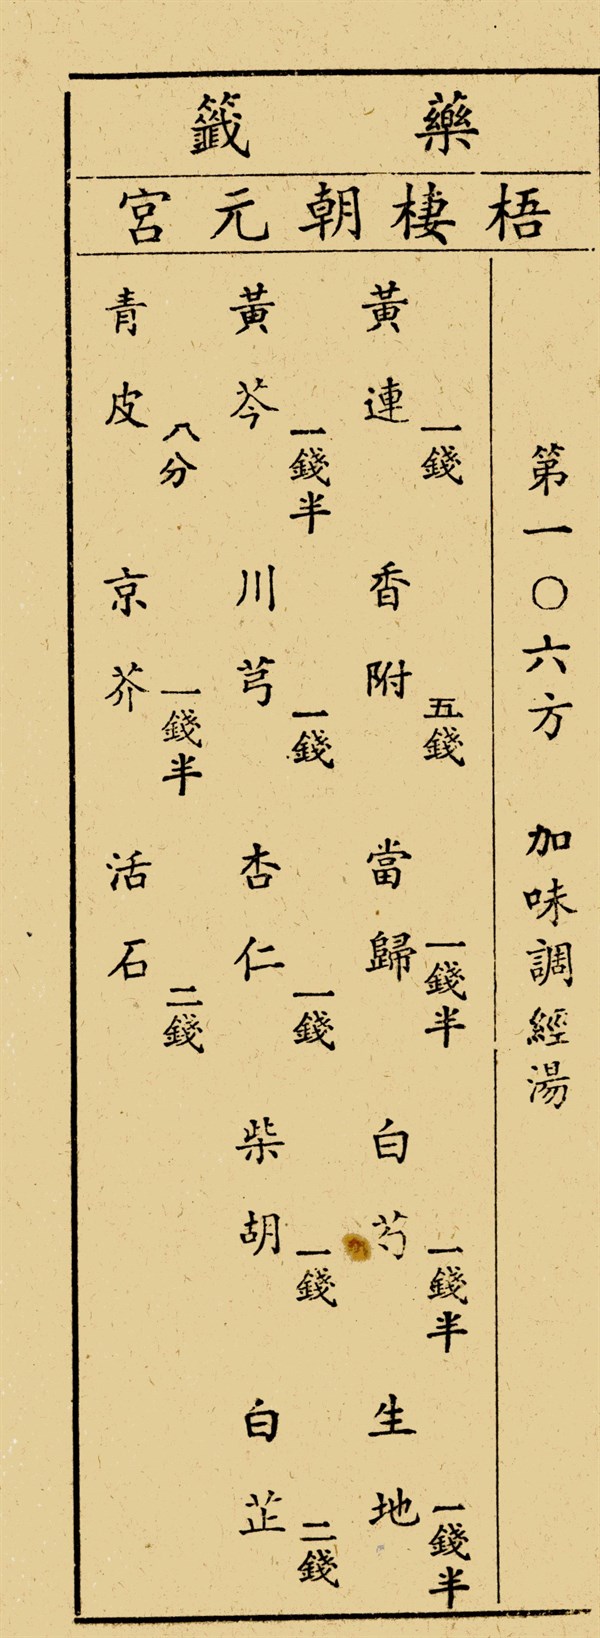 藥籤
梧棲朝元宮
第一〇六方 加味調經湯
黃連一錢 香附五錢 當歸一錢半 白芍一錢半 生地一錢半
黃芩一錢半 川芎一錢 杏仁一錢 柴胡一錢 白芷二錢
青皮八分 京芥一錢半 活石二錢